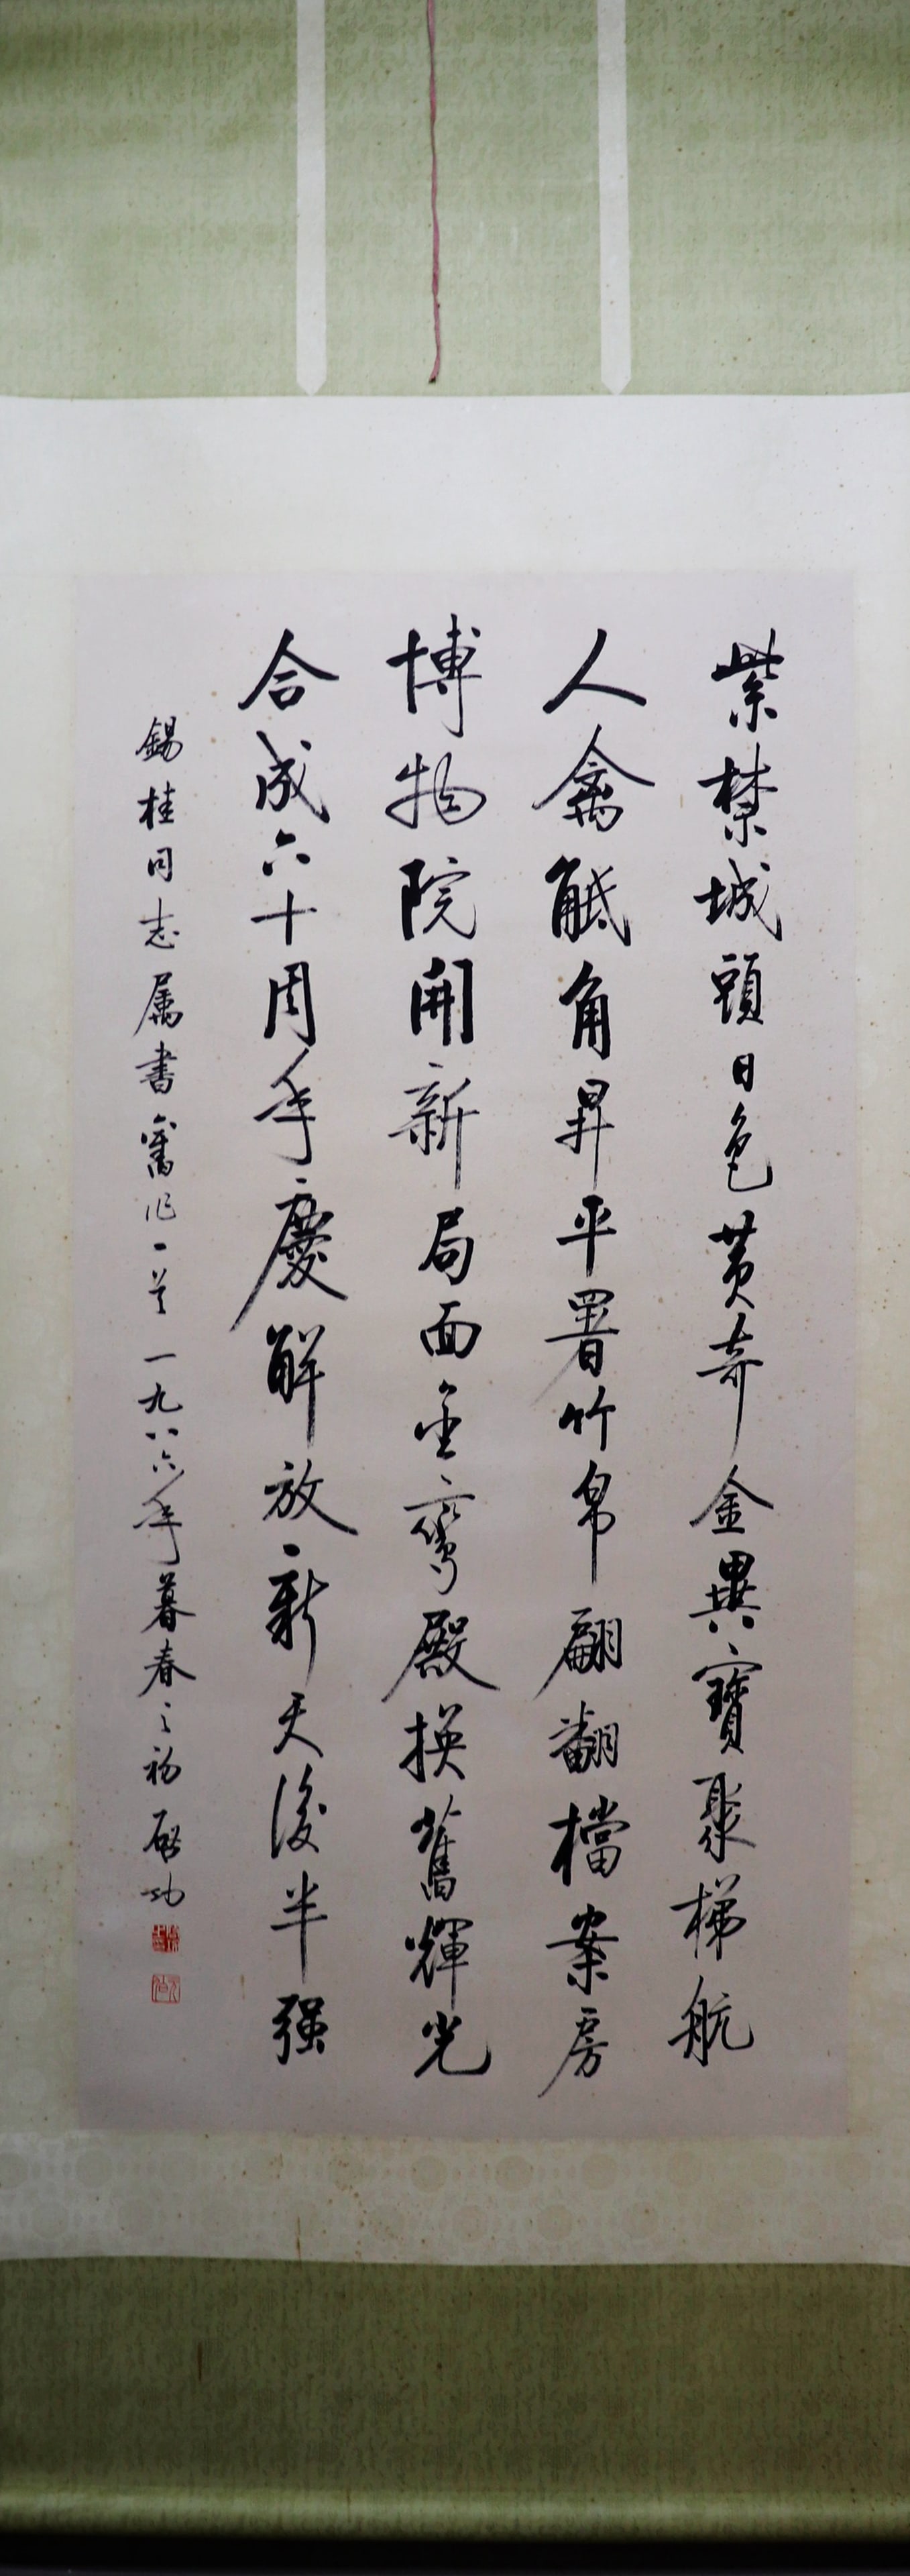 紫禁城頭日色黄奇金異寶聚梯航
人禽觝角昇平署竹帛翩翻檔案房
博物院開新局面金鑾殿換舊輝光
合成六十周年慶解放新天後半强
錫桂同志属書舊作一首一九八六年暮春之初啓功